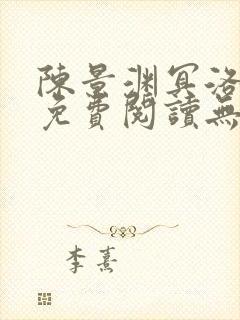 陳景淵冥洛
免費閱讀無
李熹